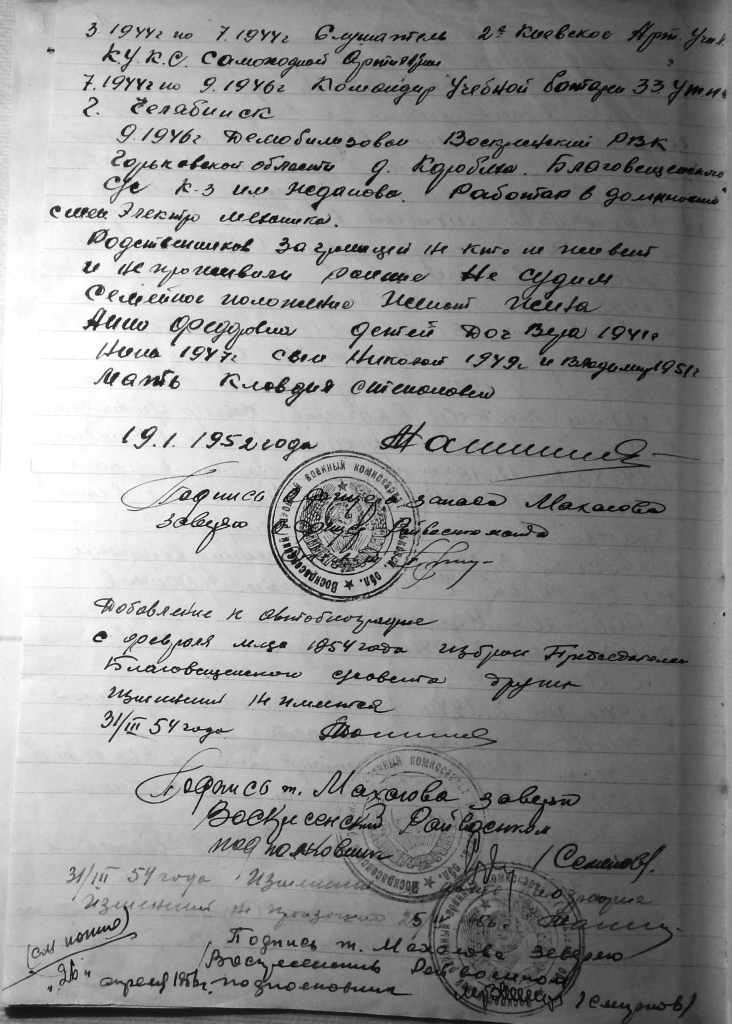 3. 1944г по 7.1944г Слушатель 2е Киевское Арт. Учи
К.У.К.С. Самоходной Артилерии
7.1944г по 9.1946г Командир Учебной батареи 33 Утп
г. Челябинск
9.1946г Демобилизован Воскресенский РВК
Горьковской области д. Коробиха. Благовещенского
С/с к-з им Жданова. Работал в должности
Электро механика.
Родственников за границей не кто не живет
и не проживали ранние Не судим
Семейное положение Женат Жена
Анна Федоровна детей Доч Вера 1941г
Нина 1947г сын Николай 1949г и Владимир 1951г
Мать Кловдия Степановна
19.1. 1952 года
Подпись запаса Махалова
заверяю Райвоенкомата
Воскресенский районный военный комиссариат обл.
Добавление к автобиографие
с февраля м-ца 1954 года избран Председателем
Благовещенского с/совета других
изменений не имеется
31/III 54 года
Подпись т. Махалова заверяю
Воскресенский Райвоенком
подполковник (Семенов).
31/III 54 года Изменений
Изменений не произошло 25
(см копию)
Подпись т. Махалова заверяю
Воскресенский Райвоенком
"26" апреля 1956г. подполковник (Семенов)